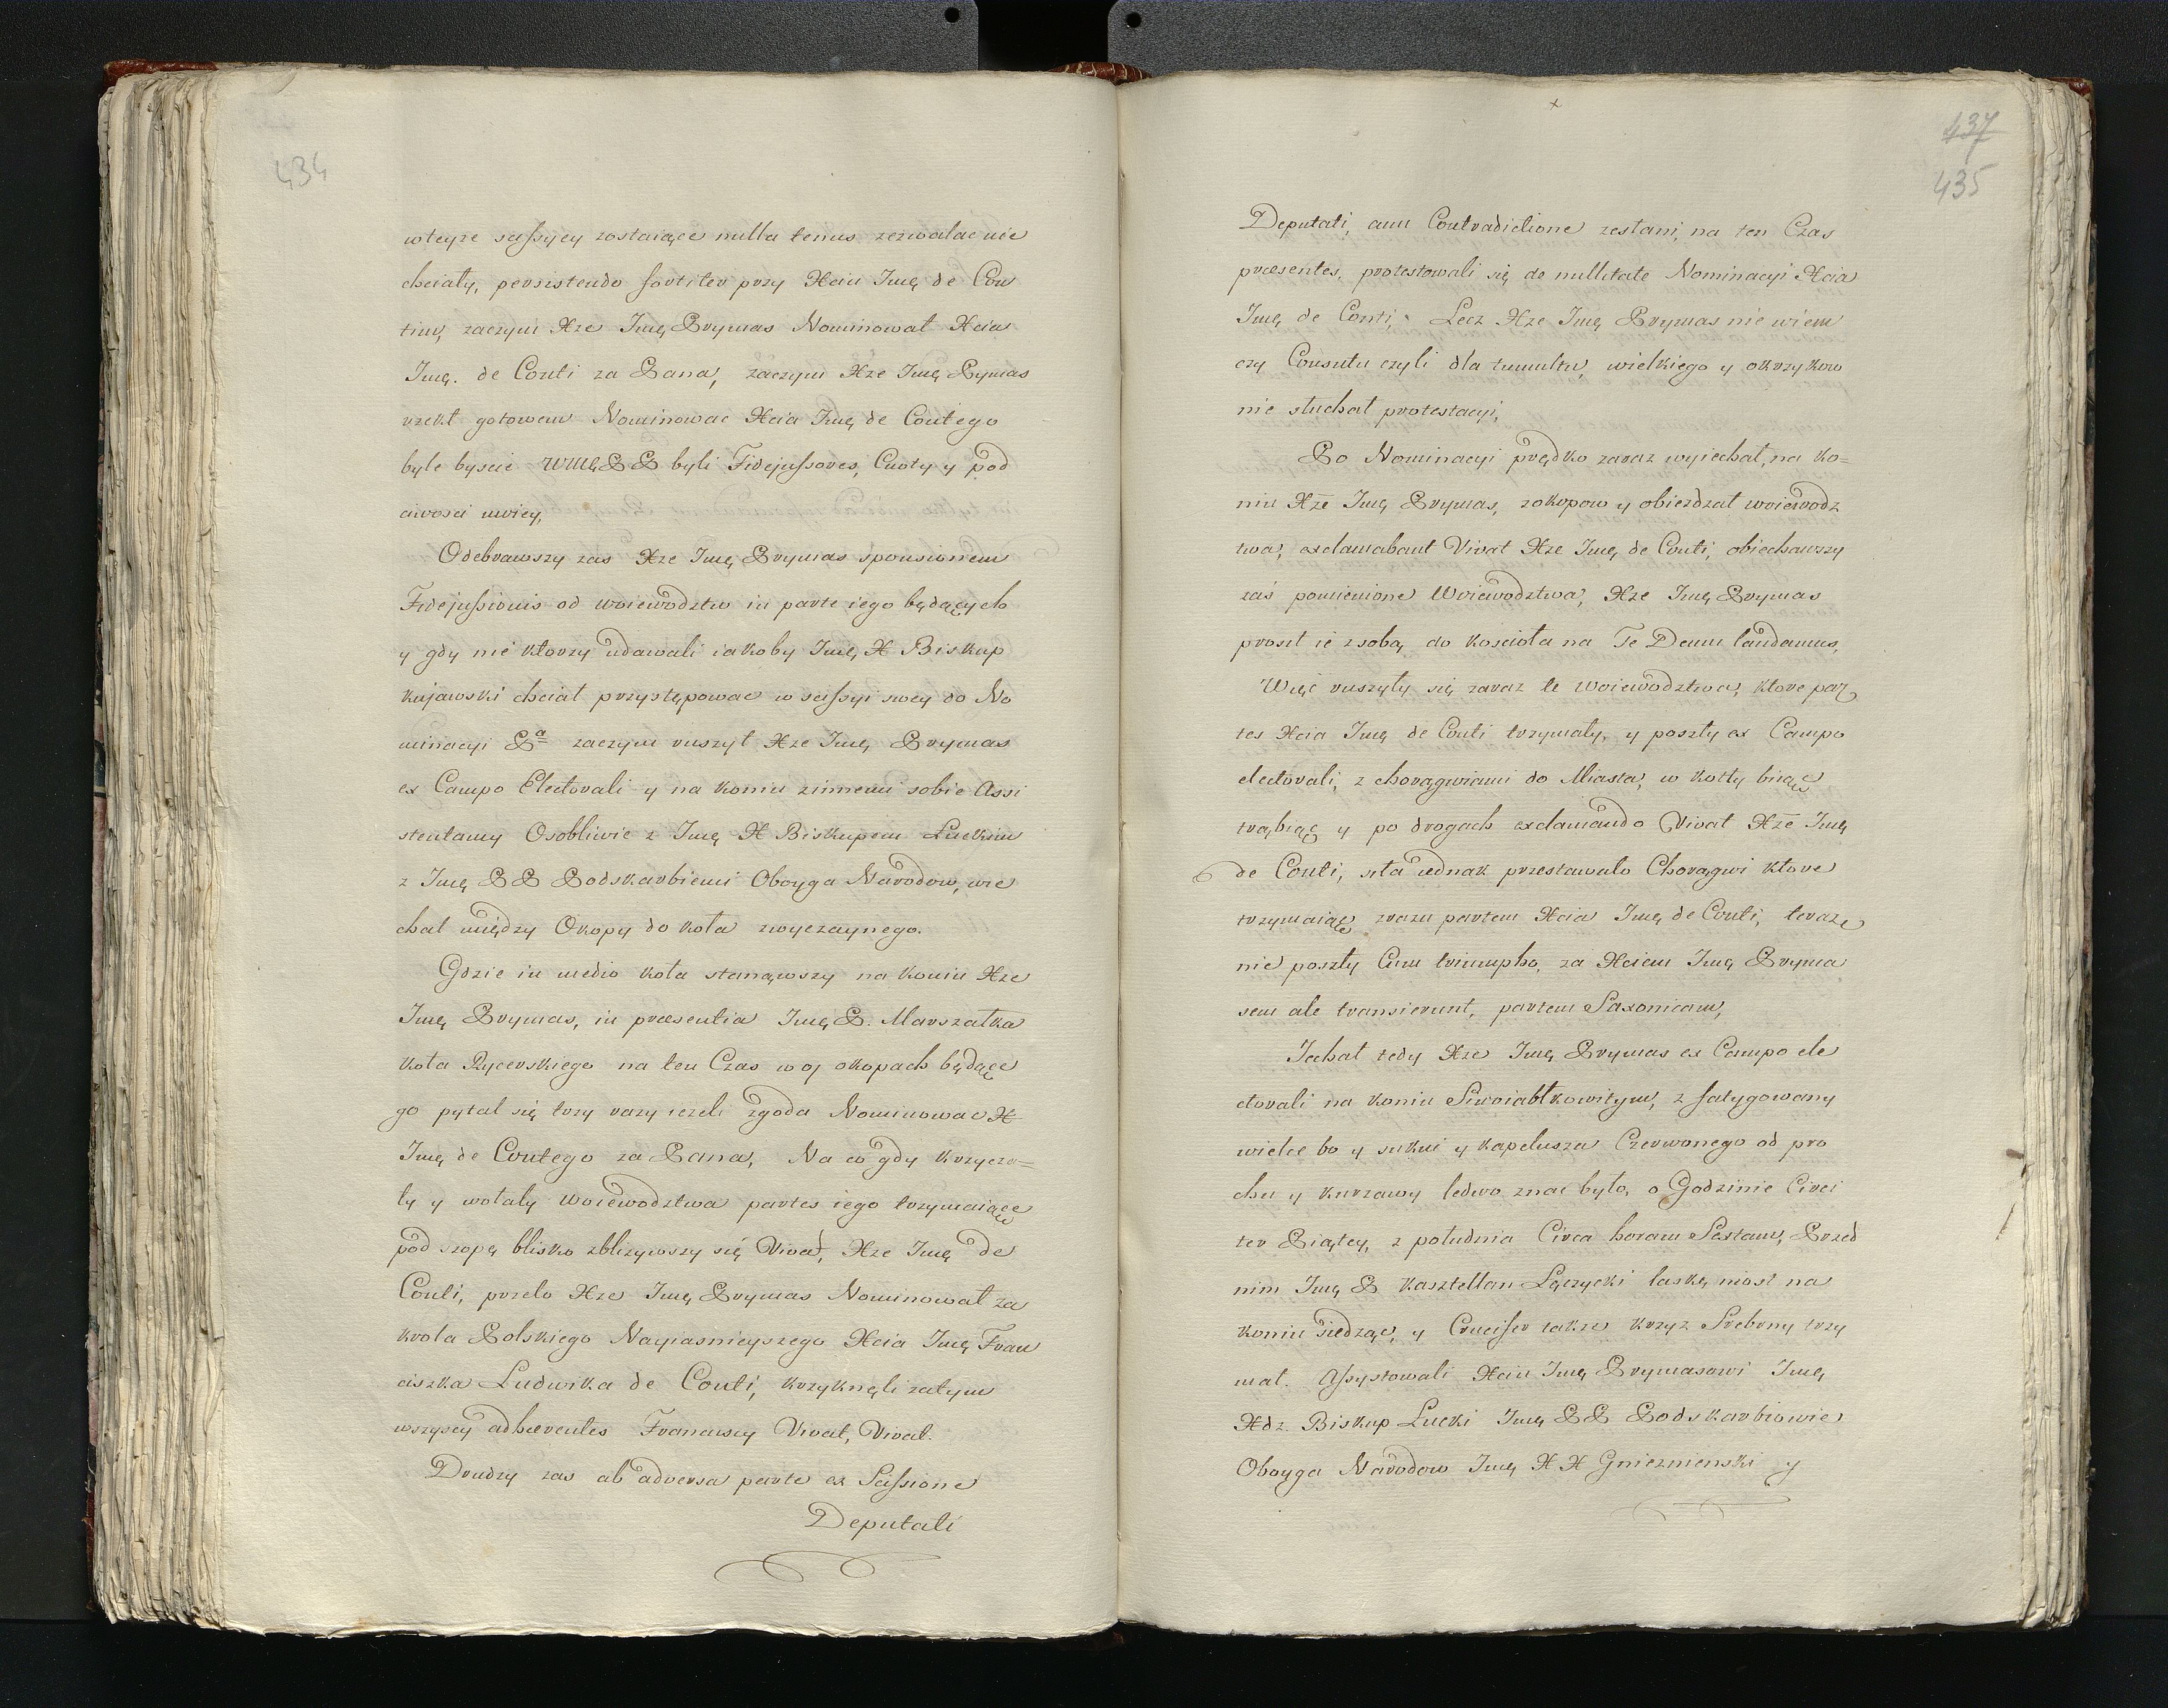 434
wteyze scissyey zostaiące nulla tenus zezwalac nie
chciały, persistendo fortiter przy Xciu Jmę de Con
tim, zaczym Xze Jmę Prymas Nominował Xcia
Jmę. de Conti za Pana, zaczym Xze Jmę Prymas
rzekł gotowem Nominowac Xcia Jmę de Contego
byle byscie WMę PP byli Fidejussores, Cnoty y pod
ciwosci moiey,
Odebrawszy zas Xze Jmę Prymas sponsionem
Fidejussionis od woiewodztw in parte iego będących
y gdy nie ktorzy udawali iakoby Jmę X Biskup
kujawski chciał przystępowac w scissyi swey do No
minacyi Pa zaczym ruszył Xze Jmę Prymas
ex Campo Electorali y na koniu zinnemi sobie Assi
stentamy Osobliwie z Jmę X Biskupem Luckim
z Jmę PP Podskarbiemi Oboyga Narodow, wie
chał między Okopy do koła zwyczaynego.
Gdzie in medio koła stanąwszy na koniu Xze
Jmę Prymas, in præsentia Jmę P. Marszałka
koła Rycerskiego na ten Czas w oj okopach będące
go pytał się trzy razy iezeli zgoda Nominowac X
Jmę de Contego za Pana, Na co gdy krzycza=
ły y wołały woiewodztwa partes iego trzymaiące
pod szopę blisko zblizywszy się Vivat, Xze Jmę de
Conti, przeto Xze Jmę Prymas Nominował za
krola Polskiego Nayiasnieyszego Xcia Jmę Fran
ciszka Ludwika de Conti, krzyknęli zatym
wszyscy adhærentes Francuscy Vivat, Vivat.
Drudzy zas ab adversa parte ex Scissione
Deputati
437
435
Deputati, cum Contradictione zestani, na ten Czas
præsentes, protestowali się de nullitate Nominacyi Xcia
Jmę de Conti, Lecz Xze Jmę Prymas nie wiem
czy Consutu czyli dla tumultu, wielkiego y okrzykow
nie słuchał protestacyi,
Po Nominacyi prędko zaraz wyiechał, na ko=
niu Xze Jmę Prymas, zokopow y obiezdzał woiewodz
twa, exclamabant Vivat Xze Jmę de Conti, obiechawszy
zaś pomienione Woiewodztwa, Xze Jmę Prymas
prosił ie zsobą do koscioła na Te Deum laudamus,
Więć ruszyły się zaraz te Woiewodztwa, ktore par
tes Xcia Jmę de Conti trzymały, y poszły ex Campo
electorali, z chorągwiami do Miasta, w kotły biiąc
trąbiąc y po drogach exclamando Vivat Xze Jmę
de Conti, siła iednak przestawało Chorągwi ktore
trzymaiąc zrazu partem Xcia Jmę de Conti, teraze
nie poszły Cum triumpho, za Xciem Jmę Pryma
sem ale transierunt, partem Saxonicam,
Jechał tedy Xze Jmę Prymas ex Campo ele
ctorali na koniu Siwoiabłkowitym, z fatygowany
wielce bo y sukni y kapelusza Czerwonego od pro
chu y kurzawy ledwo znac było, o Godzinie Circi
ter Piątey, z południa Circa horam Sextam, Przed
nim Jmę P Kasztellan Łęczycki laskę niosł na
koniu siedząc, y Crucifer takze krzyz Srebrny trzy
mał. Assystowali Xciu Jmę Prymasowi Jmę
Xdz. Biskup Lucki Jmę PP Podskarbiowie
Oboyga Narodow Jmę X X Gnieznienski y